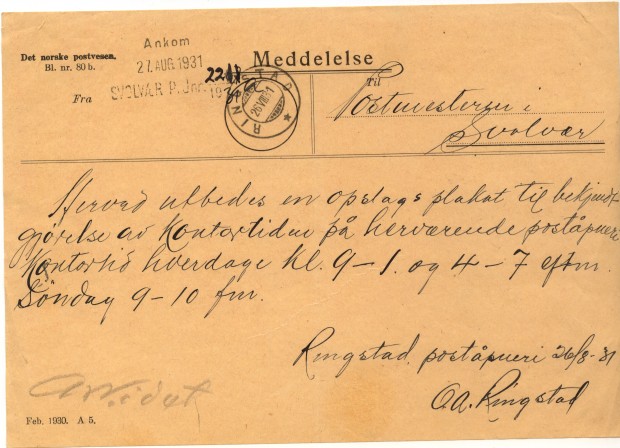 Det norske postvesen.
Bl. nr. 80 b.
Ankom
27. AUG. 1931
SVOLVÆR P. Jnr. 2211 1931
Meddelelse
Fra
RINGSTAD
26 VIII 31
Til
Postmesteren i
Svolvær
Herved utbedes en opslags plakat til bekjendt
gjørelse av Kontortiden på herværende poståpneri
Kontortid hverdage kl. 9-1. og 4-7 eftm.
Søndag 9-10 fm.
Ringstad poståpneri 26/8-31
O.A. Ringstad
Feb. 1930. A 5.